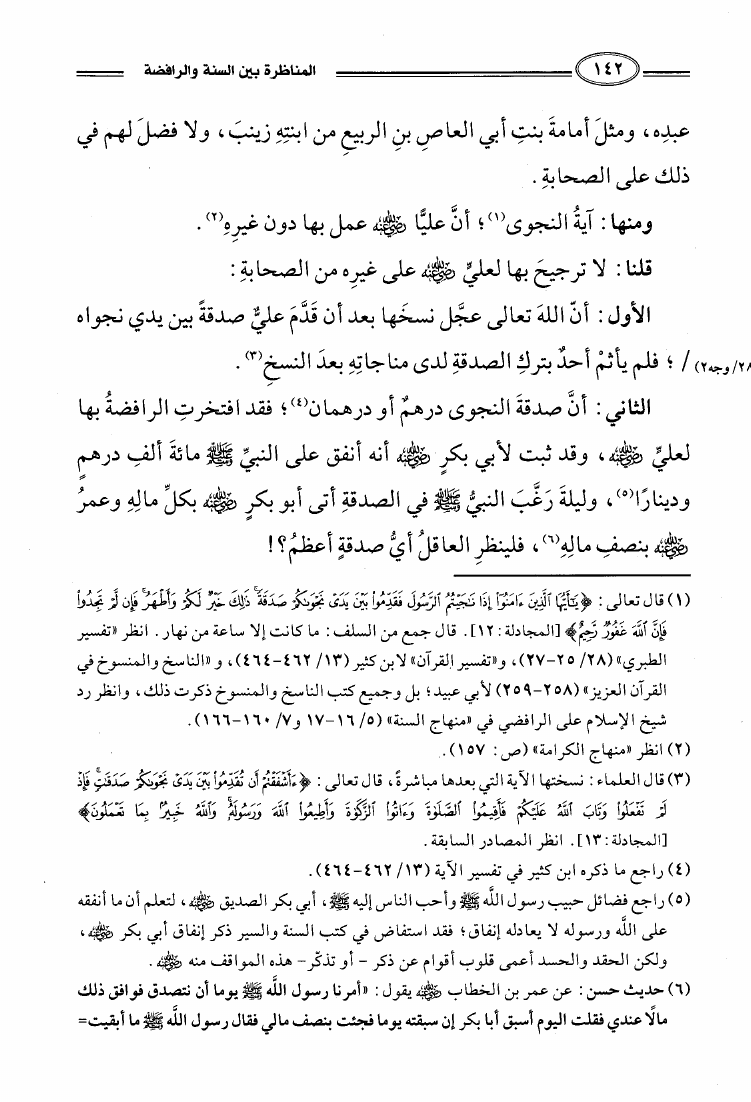 ١٤٢ المناظرة بين السنة والرافضة
عبدِه، ومثلَ أمامةَ بنتِ أبي العاصِ بنِ الربيعِ من ابنتِهِ زينبَ، ولا فضلَ لهم في
ذلك على الصحابةِ.
ومنها: آيةُ النجوى(١)؛ أنَّ عليًّا ﵁ عمل بها دون غيرِهِ(٢).
قلنا: لا ترجيحَ بها لعليٍّ ﵁ على غيرِه من الصحابةِ:
الأول: أنّ اللهَ تعالى عجَّل نسخَها بعد أن قَدَّمَ عليٌّ صدقةً بين يدي نجواه
٢٨/وجه٢) / ؛ فلم يأثمْ أحدٌ بتركِ الصدقةِ لدى مناجاتِهِ بعدَ النسخِ(٣).
الثاني: أنَّ صدقةَ النجوى درهمٌ أو درهمان(٤)؛ فقد افتخرتِ الرافضةُ بها
لعليٍّ ﵁، وقد ثبت لأبي بكرٍ ﵁ أنه أنفق على النبيِّ ﷺ مائةَ ألفِ درهمٍ
ودينارًا(٥)، وليلةَ رَغَّبَ النبيُّ ﷺ في الصدقةِ أتى أبو بكرٍ ﵁ بكلِّ مالِهِ وعمرُ
﵁ بنصفِ مالِهِ(٦)، فلينظرِ العاقلُ أيُّ صدقةٍ أعظمُ؟!
(١) قال تعالى: ﴿يَٰٓأَيُّهَا ٱلَّذِينَ ءَامَنُوٓاْ إِذَا نَٰجَيۡتُمُ ٱلرَّسُولَ فَقَدِّمُواْ بَيۡنَ يَدَيۡ نَجۡوَىٰكُمۡ صَدَقَةٗۚ ذَٰلِكَ خَيۡرٞ لَّكُمۡ وَأَطۡهَرُۚ فَإِن لَّمۡ تَجِدُواْ
فَإِنَّ ٱللَّهَ غَفُورٞ رَّحِيمٌ﴾ [المجادلة: ١٢]. قال جمع من السلف: ما كانت إلا ساعة من نهار. انظر «تفسير
الطبري» (٢٨/ ٢٥-٢٧)، و«تفسير القرآن» لابن كثير (١٣/ ٤٦٢-٤٦٤)، و«الناسخ والمنسوخ في
القرآن العزيز» (٢٥٨-٢٥٩) لأبي عبيد؛ بل وجميع كتب الناسخ والمنسوخ ذكرت ذلك، وانظر رد
شيخ الإسلام على الرافضي في «منهاج السنة» (٥/ ١٦-١٧ و٧/ ١٦٠-١٦٦).
(٢) انظر «منهاج الكرامة» (ص: ١٥٧).
(٣) قال العلماء: نسختها الآية التي بعدها مباشرةً، قال تعالى: ﴿ءَأَشۡفَقۡتُمۡ أَن تُقَدِّمُواْ بَيۡنَ يَدَيۡ نَجۡوَىٰكُمۡ صَدَقَٰتٖۚ فَإِذۡ
لَمۡ تَفۡعَلُواْ وَتَابَ ٱللَّهُ عَلَيۡكُمۡ فَأَقِيمُواْ ٱلصَّلَوٰةَ وَءَاتُواْ ٱلزَّكَوٰةَ وَأَطِيعُواْ ٱللَّهَ وَرَسُولَهُۥۚ وَٱللَّهُ خَبِيرُۢ بِمَا تَعۡمَلُونَ﴾
[المجادلة: ١٣]. انظر المصادر السابقة.
(٤) راجع ما ذكره ابن كثير في تفسير الآية (١٣/ ٤٦٢-٤٦٤).
(٥) راجع فضائل حبيب رسول اللَّه ﷺ وأحب الناس إليه ﷺ، أبي بكر الصديق ﵁، لتعلم أن ما أنفقه
على اللَّه ورسوله لا يعادله إنفاق؛ فقد استفاض في كتب السنة والسير ذكر إنفاق أبي بكر ﵁،
ولكن الحقد والحسد أعمى قلوب أقوام عن ذكر - أو تذكّر - هذه المواقف منه ﵁.
(٦) حديث حسن: عن عمر بن الخطاب ﵁ يقول: «أمرنا رسول اللَّه ﷺ يوما أن نتصدق فوافق ذلك
مالًا عندي فقلت اليوم أسبق أبا بكر إن سبقته يوما فجئت بنصف مالي فقال رسول اللَّه ﷺ ما أبقيت=